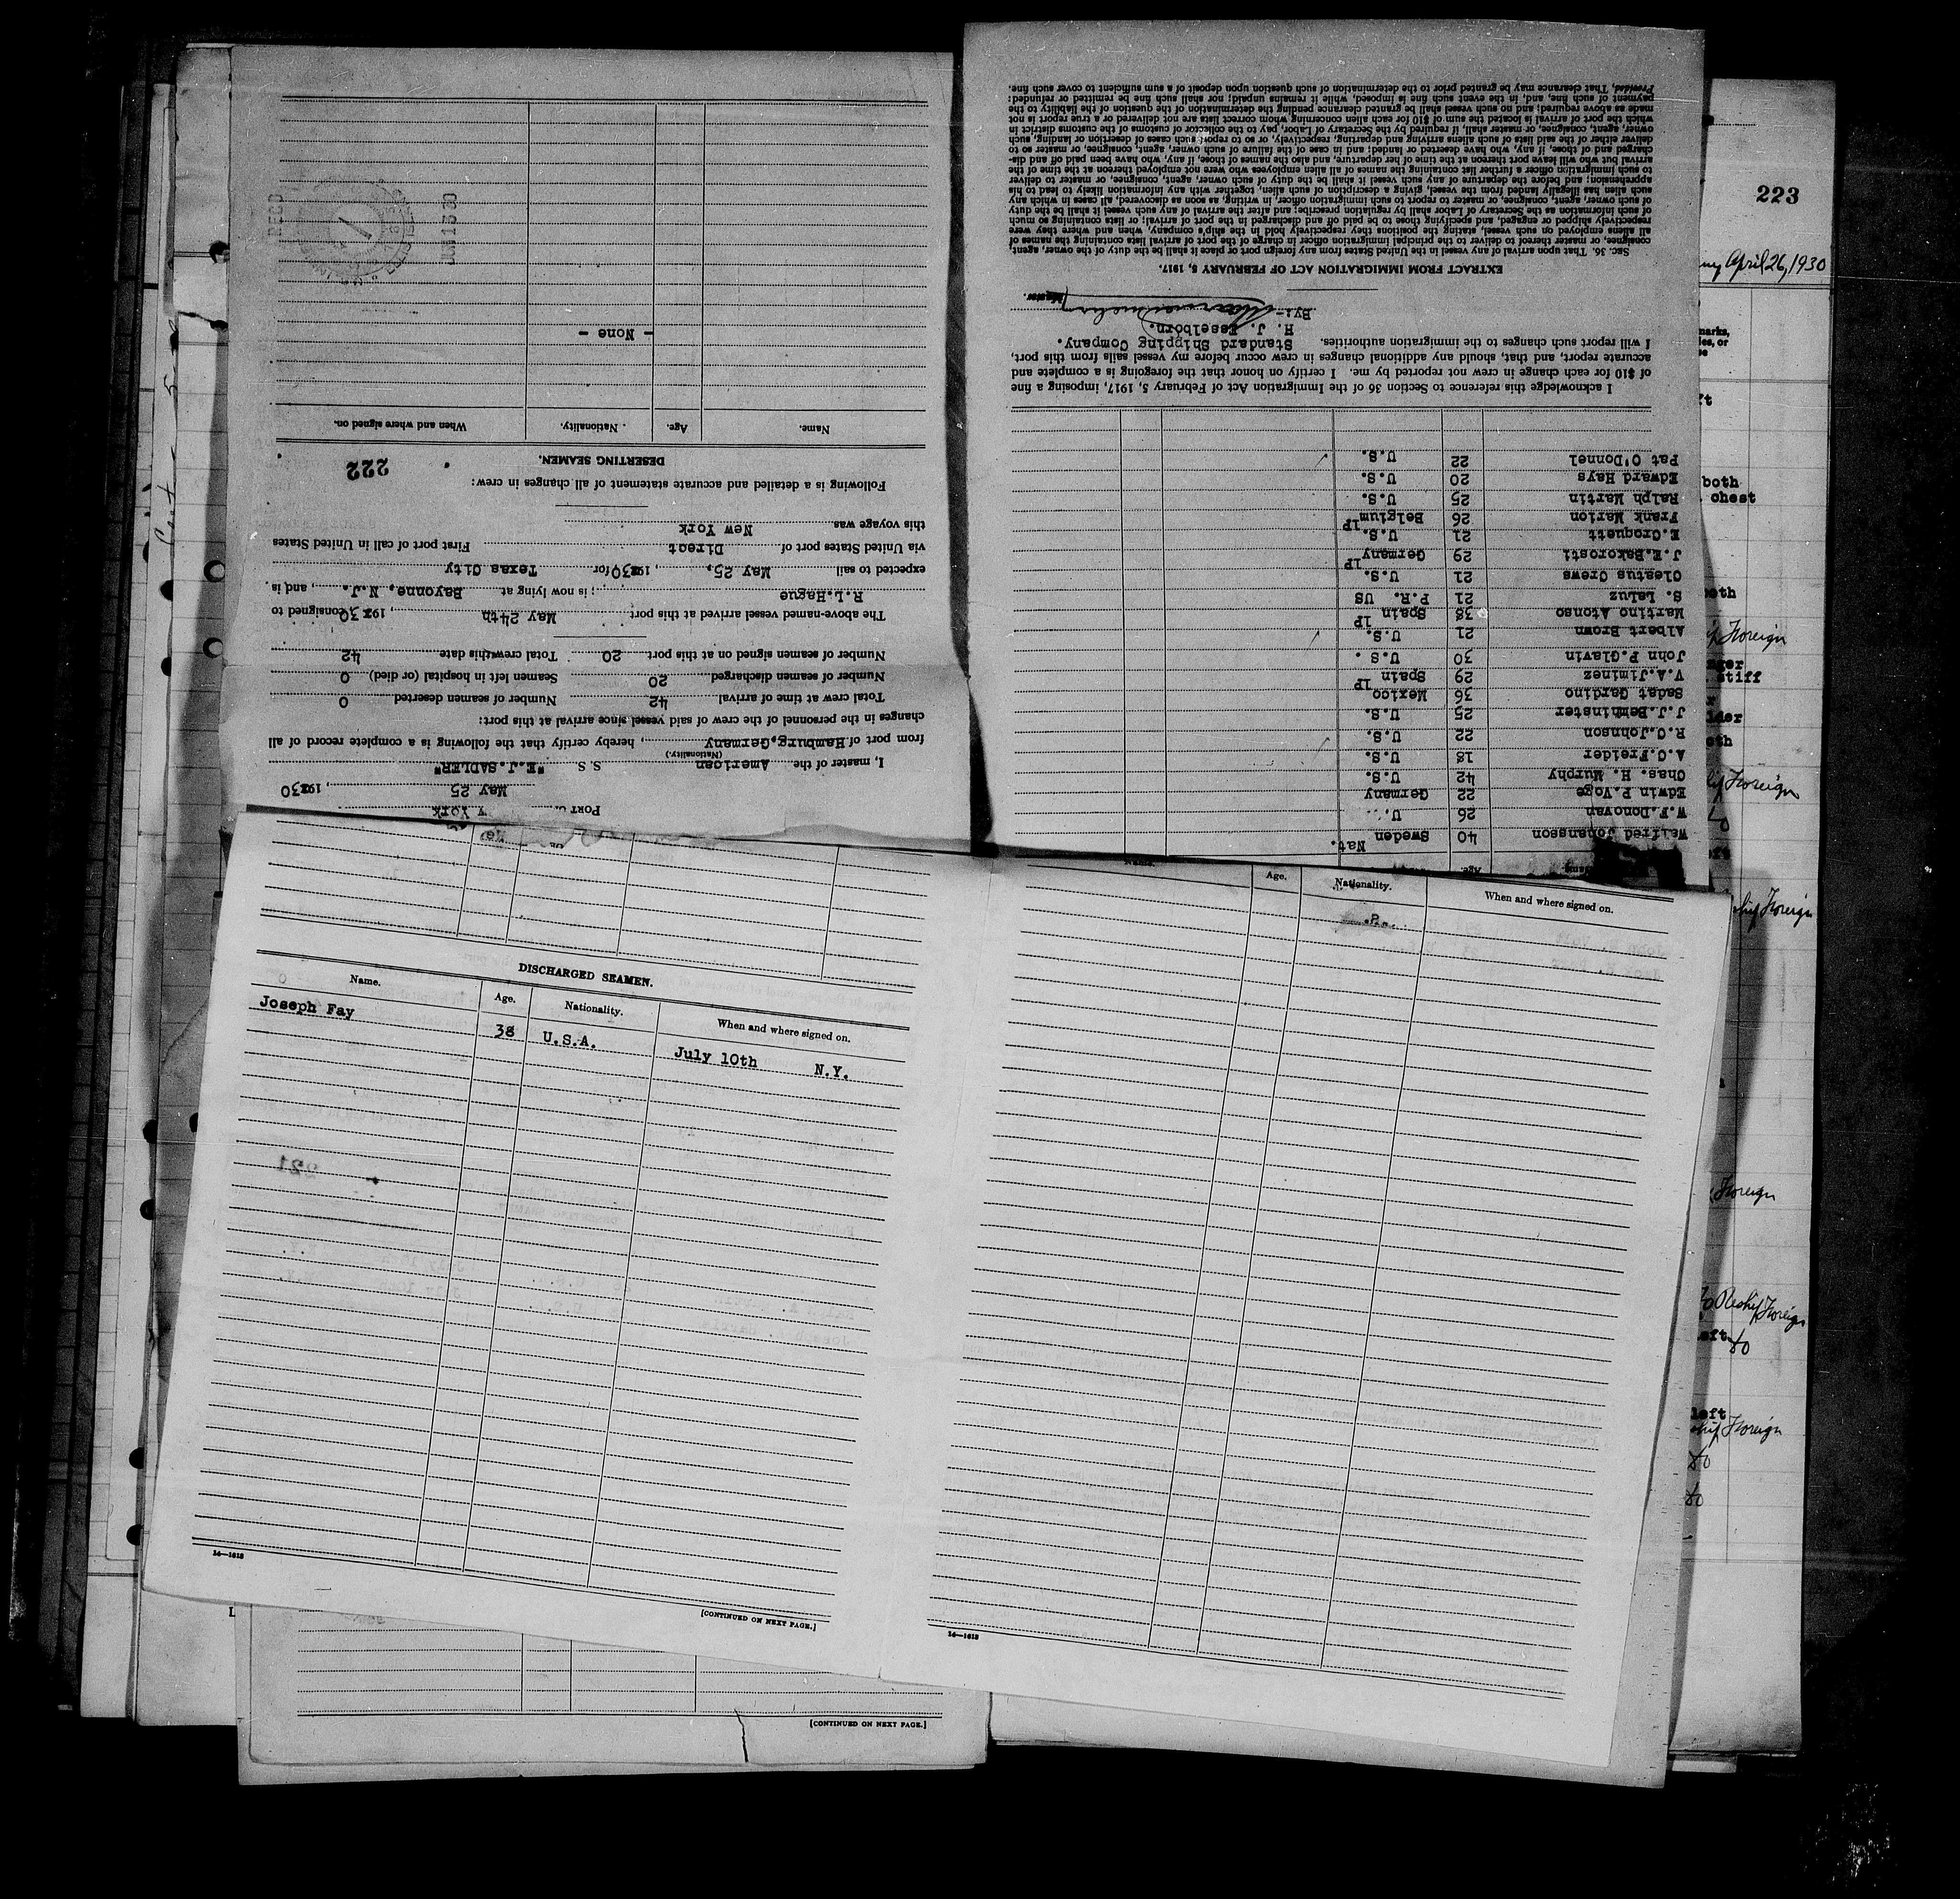 PORT
Y York
May 25, 19830
I, master of the American S. S. "E.J. SADLER"
(Nationality)
from port of Hamburg, Germany, hereby certify that the following is a complete record of all
changes in the personnel of the crew of said vessel since arrival at this port:
Total crew at time of arrival 42 Number of seamen deserted 0
Number of seamen discharged 20 Seamen left in hospital (or died) 0
Number of seamen signed on at this port 20 Total crew this date 42
The above-named vessel arrived at this port May 24th, 30 consigned to
R.L.Hague ; is now lying at Bayonne, N.J., and is
expected to sail May 25, 30 for Texas City
via United States port of Direct First port of call in United States
this voyage was New York
Following is a detailed and accurate statement of all changes in crew:
DESERTING SEAMEN.
222
Name. Age. Nationality. When and where signed on.
- None -
REC'D
JUN 13 30
Age.
Nat.
Welfred Johansson 40 Sweden
W.F.Donovan 26 U.
Edwin P.Voge 22 Germany
Chas. H. Murphy 42 U.S.
A.C.Freider 18 U.S.
R.C.Johnson 22 U.S.
J.J.Behlnster 25 U.S.
Sadat Gardino 36 Mexico
V.A.Jiminez 29 Spain 1P
John P.Glavin 30 U.S.
Albert Brown 21 U.S.
Martino Atonso 38 Spain 1P
S. LaLuz 21 P.R. US
Cleatus Crews 21 U.S.
J.E.Bakorosti 29 Germany 1P
E.Croquett 21 U.S.
Frank Marion 26 Belgium 1P
Ralph Martin 25 U.S.
Edward Hays 20 U.S.
Pat O'Donnel 22 U.S.
I acknowledge this reference to Section 36 of the Immigration Act of February 5, 1917, imposing a fine
of $10 for each change in crew not reported by me. I certify on honor that the foregoing is a complete and
accurate report, and that, should any additional changes in crew occur before my vessel sails from this port,
I will report such changes to the immigration authorities. Standard Shipping Company.
H. J. Esselborn.
By:-
Master.
EXTRACT FROM IMMIGRATION ACT OF FEBRUARY 5, 1917.
SEC. 36. That upon arrival of any vessel in the United States from any foreign port or place it shall be the duty of the owner, agent,
consignee, or master thereof to deliver to the principal immigration officer in charge of the port of arrival lists containing the names of
all aliens employed on such vessel, stating the positions they respectively hold in the ship's company, when and where they were
respectively shipped or engaged, and specifying those to be paid off and discharged in the port of arrival; or lists containing so much
of such information as the Secretary of Labor shall by regulation prescribe; and after the arrival of any such vessel it shall be the duty
of such owner, agent, consignee, or master to report to such immigration officer, in writing, as soon as discovered, all cases in which any
such alien has illegally landed from the vessel, giving a description of such alien, together with any information likely to lead to his
apprehension; and before the departure of any such vessel it shall be the duty of such owner, agent, consignee, or master to deliver
to such immigration officer a further list containing the names of all alien employees who were not employed thereon at the time of the
arrival but who will leave port thereon at the time of her departure, and also the names of those, if any, who have been paid off and dis-
charged and of those, if any, who have deserted or landed; and in case of the failure of such owner, agent, consignee, or master so to
deliver either of the said lists of such aliens arriving and departing, respectively, or so to report such cases of desertion or landing, such
owner, agent, consignee, or master shall, if required by the Secretary of Labor, pay to the collector of customs of the customs district in
which the port of arrival is located the sum of $10 for each alien concerning whom correct lists are not delivered or a true report is not
made as above required; and no such vessel shall be granted clearance pending the determination of the question of the liability to the
payment of such fine, and, in the event such fine is imposed, while it remains unpaid; nor shall such fine be remitted or refunded:
Provided, That clearance may be granted prior to the determination of such question upon deposit of a sum sufficient to cover such fine.
223
April 26, 1930
both
chest
Foreign
stiff
Foreign
Foreign
Foreign
Foreign
left
do
left
Foreign
do
do
DISCHARGED SEAMEN.
Name. Age. Nationality. When and where signed on.
Joseph Fay 38 U.S.A. July 10th N.Y.
14—1618
[CONTINUED ON NEXT PAGE.]
Age. Nationality. When and where signed on.
14—1618
[CONTINUED ON NEXT PAGE.]